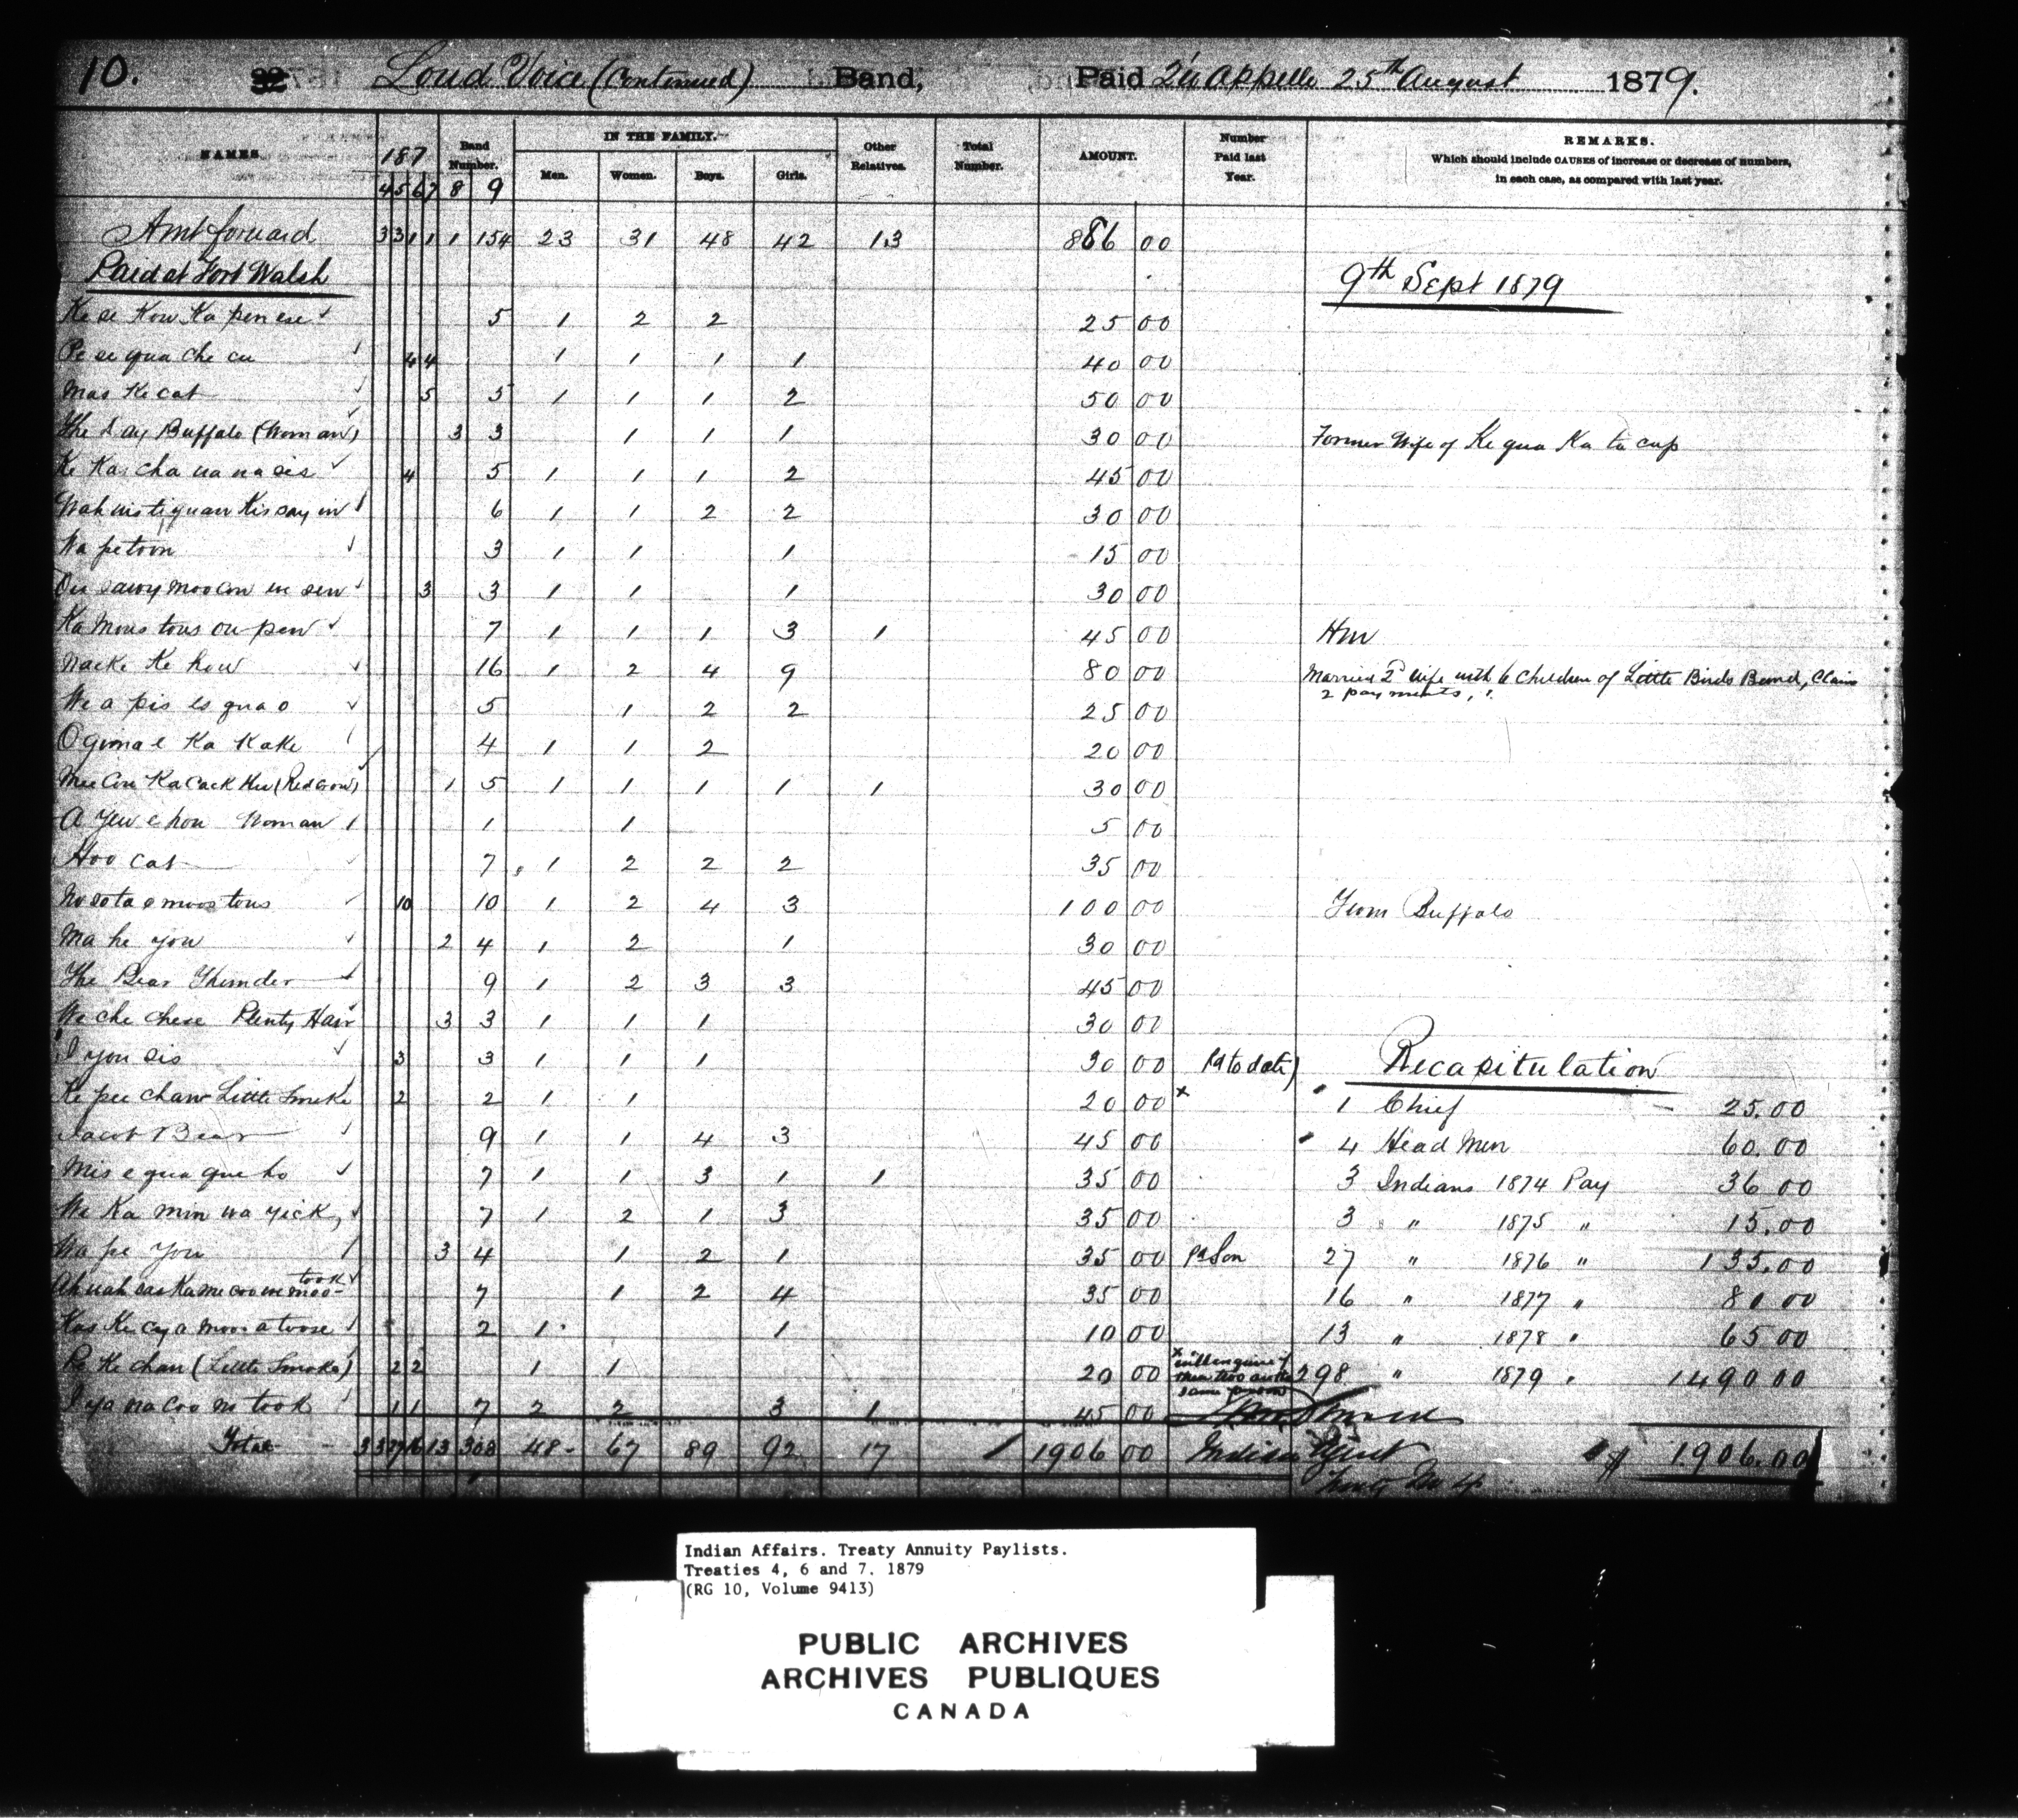 10. Loud Voice (Continued) Band, Paid Qu'Appelle 25th August 1879.
NAMES 187 Band Number. IN THE FAMILY. Other Relatives. Total Number. AMOUNT. Number Paid last Year. REMARKS.
Which should include CAUSES of increase or decrease of numbers,
in each case, as compared with last year.
4 5 6 7 8 9 Men. Women. Boys. Girls.
Amt forward 3 3 1 1 1 154 23 31 48 42 13 886 00
Paid at Fort Walsh 9th Sept 1879
Ke se Kow Ka pen ese 5 1 2 2 25 00
Pe se qua che cu 4 4 1 1 1 1 40 00
Mas Ke cat 5 5 1 1 1 2 50 00
The Day Buffalo (Woman) 3 3 1 1 1 30 00 Former Wife of Ke qua Ka ta cup
Ke Kas cha wa na sis 4 5 1 1 1 2 45 00
Wah wis ti quan Kis say in 6 1 1 2 2 30 00
Wa petoon 3 1 1 1 15 00
sawy moo con us sin 3 3 1 1 1 30 00
Ka Mous tous ou pew 7 1 1 1 3 1 45 00 Hm
Nacke Ke how 16 1 2 4 9 80 00 Married 2d wife with 6 Children of Little Birds Band, Claim
2 payments,
We a pis es qua o 5 1 2 2 25 00
Ogima e Ka Kake 4 1 1 2 20 00
Mee Con Ka Cack Kee (Red Crow) 1 5 1 1 1 1 1 30 00
A yew e hon Woman 1 1 5 00
Hoo cat 7 1 2 2 2 35 00
No sota e moos tous 10 10 1 2 4 3 100 00 From Buffalo
Ma he you 2 4 1 2 1 30 00
The Bear Thunder 9 1 2 3 3 45 00
We che chese Plenty Hair 3 3 1 1 1 30 00
I you sis 3 3 1 1 1 30 00 Pd to date) Recapitulation
Ke pee chaw Little Smoke 2 2 1 1 20 00 x 1 Chief 25.00
Jacob Bear 9 1 1 4 3 45 00 4 Head Men 60.00
Mis e qua que ho 7 1 1 3 1 1 35 00 3 Indians 1874 Pay 36 00
We Ka min wa yick, 7 1 2 1 3 35 00 3 " 1875 " 15.00
Wa pe you 3 4 1 2 1 35 00 Pd Son 27 " 1876 " 135.00
took
Ah wah cas Ka me coo we moo- 7 1 2 4 35 00 16 " 1877 " 80 00
Kas Ke cy a moo a toose 2 1 1 10 00 13 " 1878 " 65 00
Pe Ke chan (Little Smoke) 2 2 1 1 20 00 x will enquire if these two are the same person 298 " 1879 " 1490 00
I ya na coo m took 1 1 7 2 2 3 1 45 00
Total 3 3 27 16 13 308 48 67 89 92 17 1906 00 Indian Agent $ 1906.00
Indian Affairs. Treaty Annuity Paylists.
Treaties 4, 6 and 7. 1879
(RG 10, Volume 9413)
PUBLIC ARCHIVES
ARCHIVES PUBLIQUES
CANADA